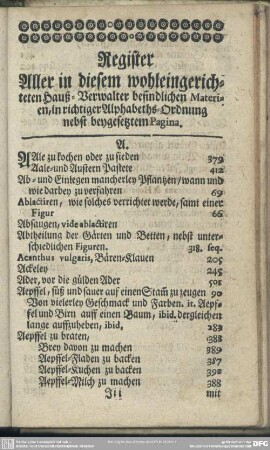 Register
Aller in diesem wohleingerich-
teten Hauß-Verwalter befindlichen Materi-
en, in richtiger Alphabeths-Ordnung
nebst beygesetztem Pagina.
A.
Aale zu kochen oder zu sieden 379
Aale-und Austern Pastete 412
Ab- und Einlegen mancherley Pflantzen/wann und
wie darbey zu verfahren 69
Ablactiren, wie solches verrichtet werde, samt einer
Figur 66
Absaugen, vide ablactiren
Abtheilung der Gärten und Betten, nebst unter-
schiedlichen Figuren. 318. seq.
Acanthus vulgaris, Bären-Klauen 205
Ackeley 245
Ader, vor die gülden Ader 502
Aepffel, süß und sauer auf einen Stam̃ zu zeugen 90
Von vielerley Geschmack und Farben. it. Aepf-
fel und Birn auff einen Baum, ibid. dergleichen
lange auffzuheben, ibid, 283
Aepffel zu braten, 388
Brey davon zu machen 389
Aepffel-Fladen zu backen 387
Aepffel-Kuchen zu backen 390
Aepffel-Milch zu machen 388
Jii mit